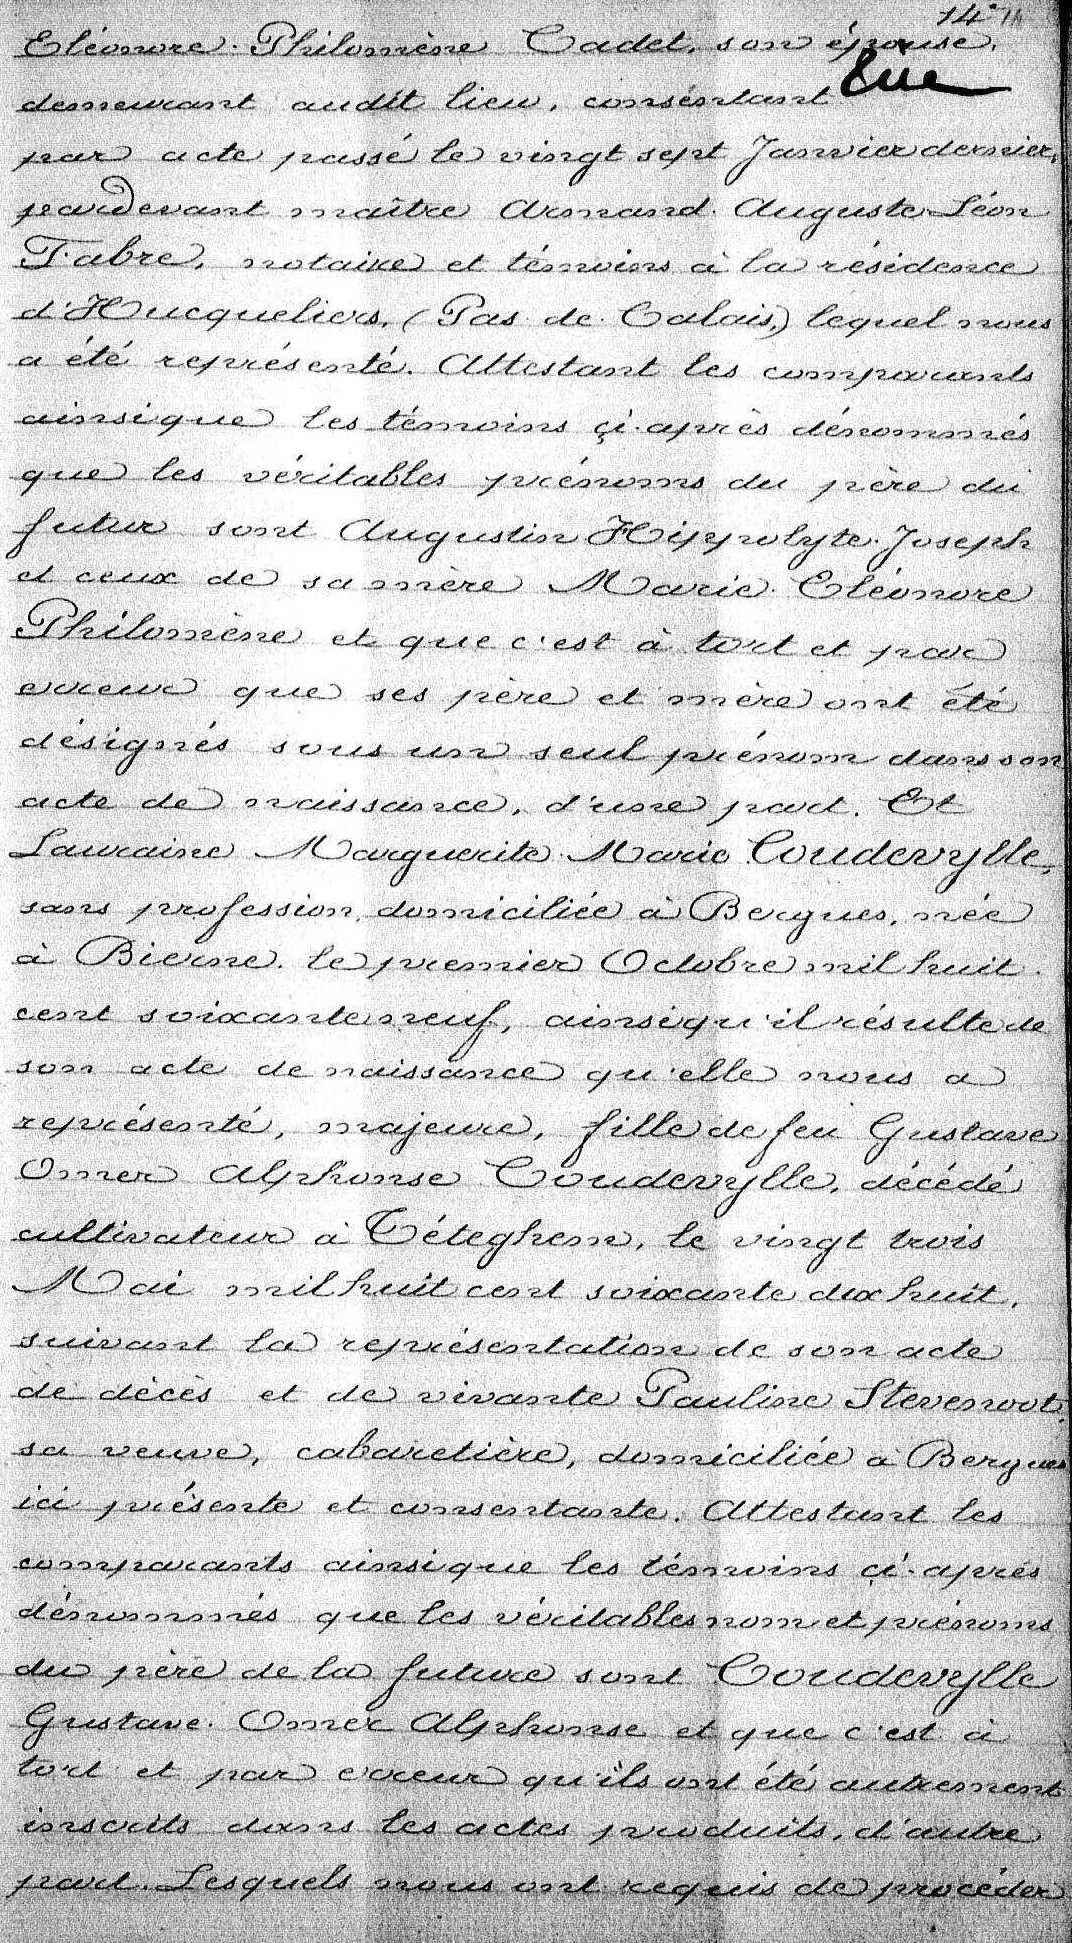 14
Eléonore Philomène Cadet, son épouse,
demeurant audit lieu, consentant
par acte passé le vingt sept Janvier dernier,
pardevant maître Armand Auguste Léon
Fabre, notaire et témoins à la résidence
d'Hucqueliers, (Pas de Calais,) lequel nous
a été représenté. Attestant les comparants
ainsique les témoins çi-après dénommés
que les véritables prénoms du père du
futur sont Augustin Hippolyte Joseph
et ceux de sa mère Marie Eléonore
Philomène et que c'est à tort et par
erreur que ses père et mère ont été
désignés sous un seul prénom dans son
acte de naissance, d'une part. Et
Lauraine Marguerite Marie Coudevylle,
sans profession, domiciliée à Bergues, née
à Bierne. le premier Octobre mil huit
cent soixante neuf, ainsiqu'il résulte de
son acte de naissance qu'elle nous a
représenté, majeure, fille de feu Gustave
Omer Alphonse Coudevylle, décédé
cultivateur à Téteghem, le vingt trois
Mai mil huit cent soixante dix huit,
suivant la représentation de son acte
de décès et de vivante Pauline Stevenoot
sa veuve, cabaretière, domiciliée à Bergues
ici présente et consentante. Attestant les
comparants ainsique les témoins çi-après
dénommés que les véritables nom et prénoms
du père de la future sont Coudevylle
Gustave Omer Alphonse et que c'est à
tort et par erreur qu'ils ont été autrement
inscrits dans les actes produits, d'autre
part. Lesquels nous ont requis de procéder